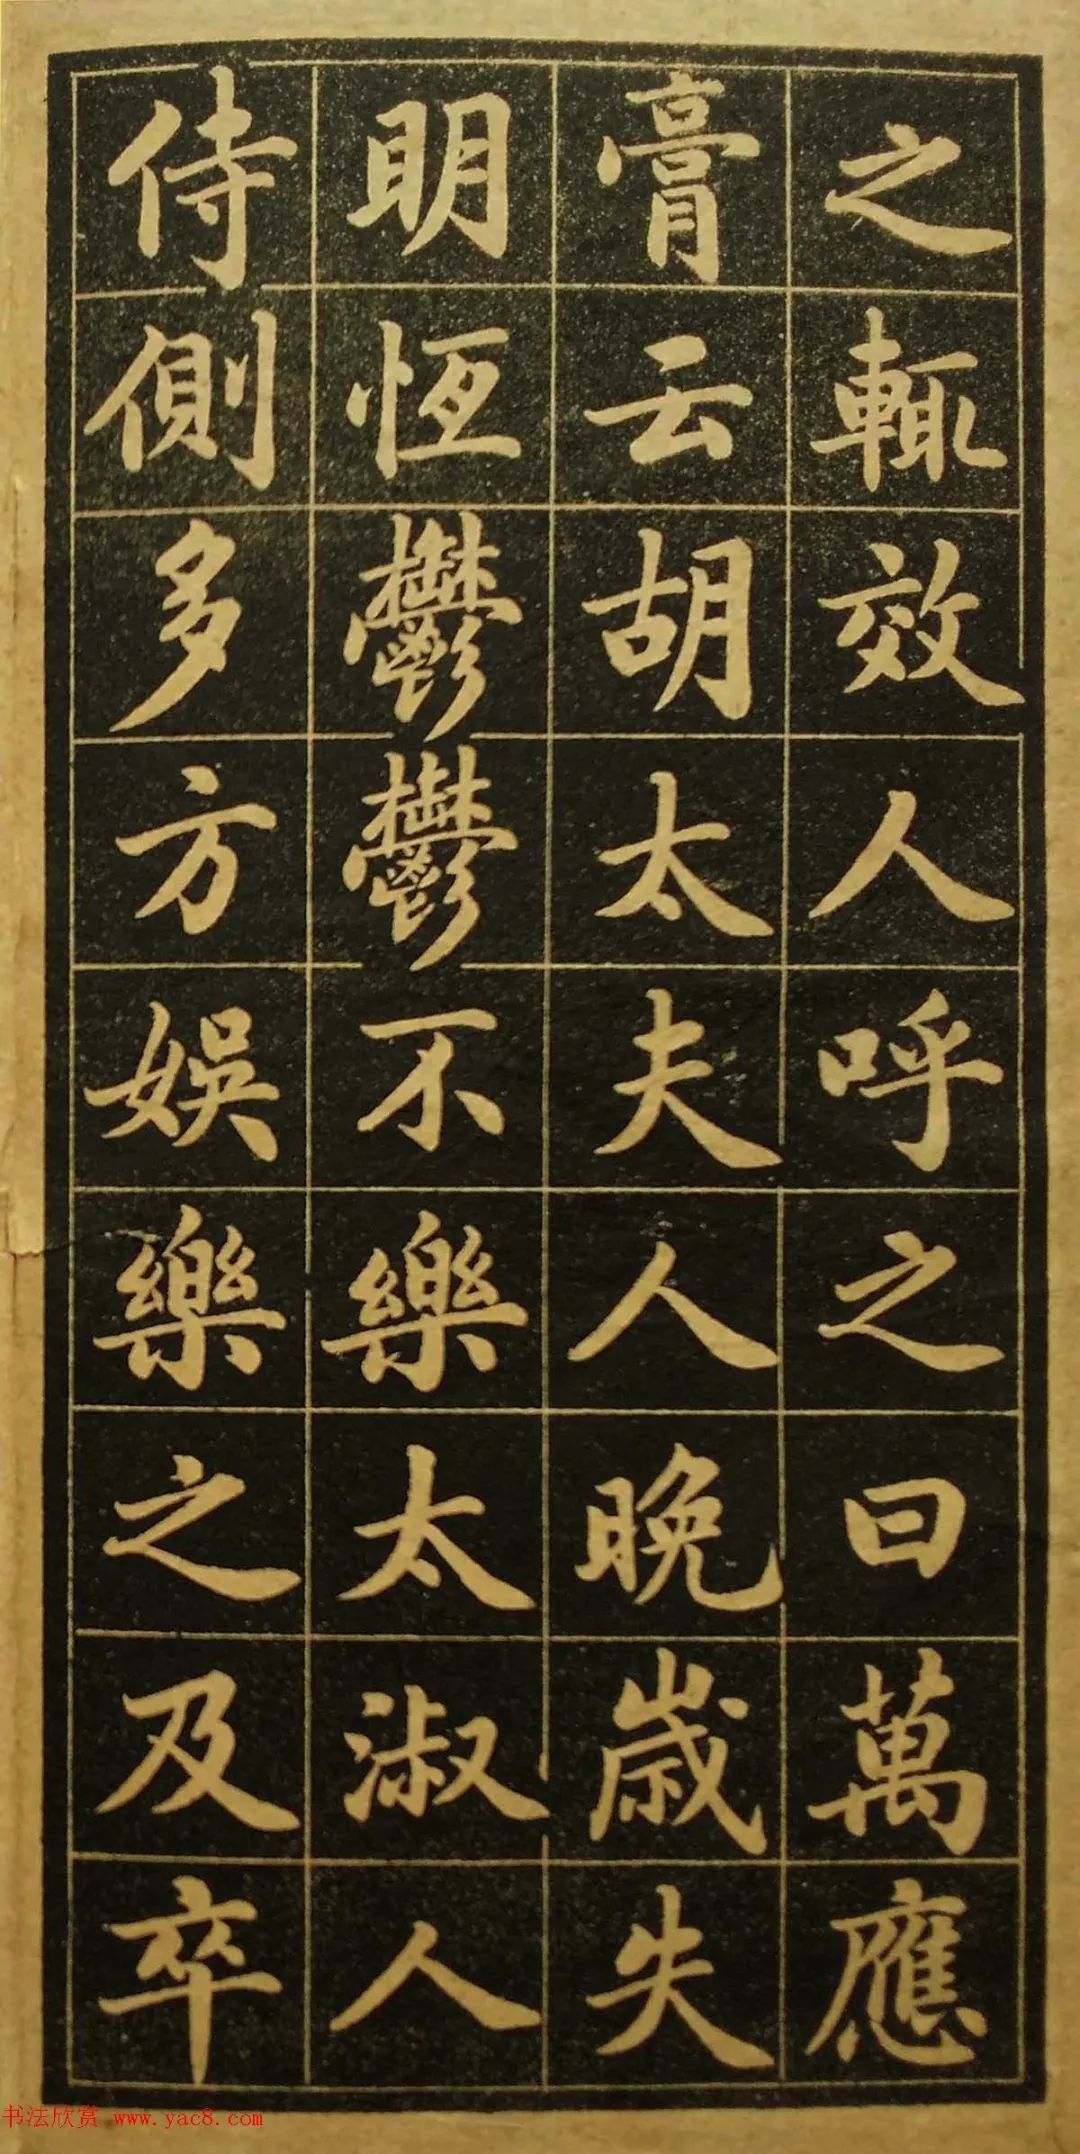 之輒效人呼之曰萬應
膏云胡太夫人晚歲失
明恆鬱鬱不樂太淑人
侍側多方娛樂之及卒
书法欣赏 www.yac8.com